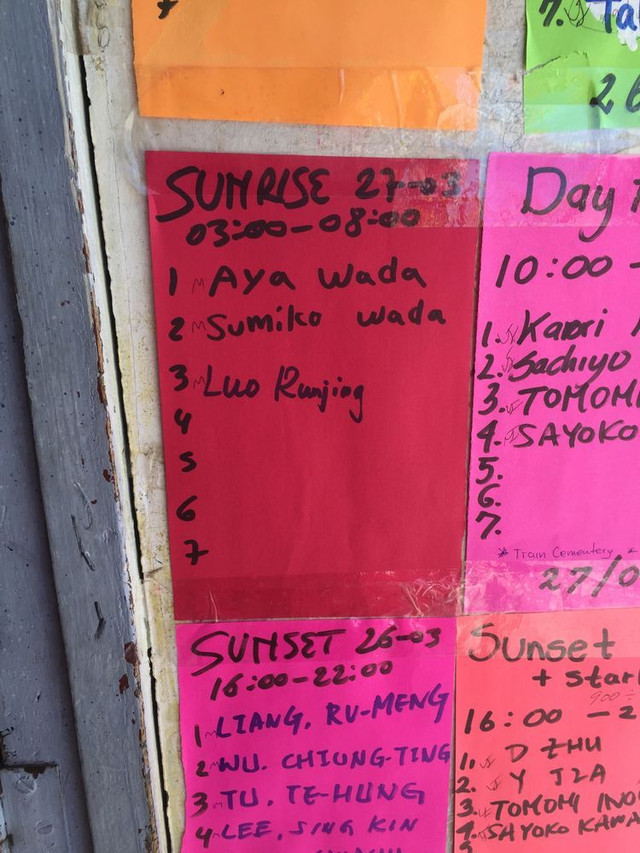 7
7. Ta
26
SUNRISE 27-03
03:00-08:00
1 Aya Wada
2 Sumiko Wada
3 Luo Runjing
4
5
6
7
Day
10:00 -
1. Kaori
2. Sachiyo
3. TOMOMI
4. SAYOKO
5.
6.
7.
* Train Cementery *
27/0
SUNSET 26-03
16:00-22:00
1 LIANG, RU-MENG
2 WU. CHIUNG-TING
3 TU, TE-HUNG
4 LEE, SING KIN
Sunset
+ star
16:00 - 2
1. D ZHU
2. Y JIA
3. TOMOMI INO
4. SAYOKO KAWA
5